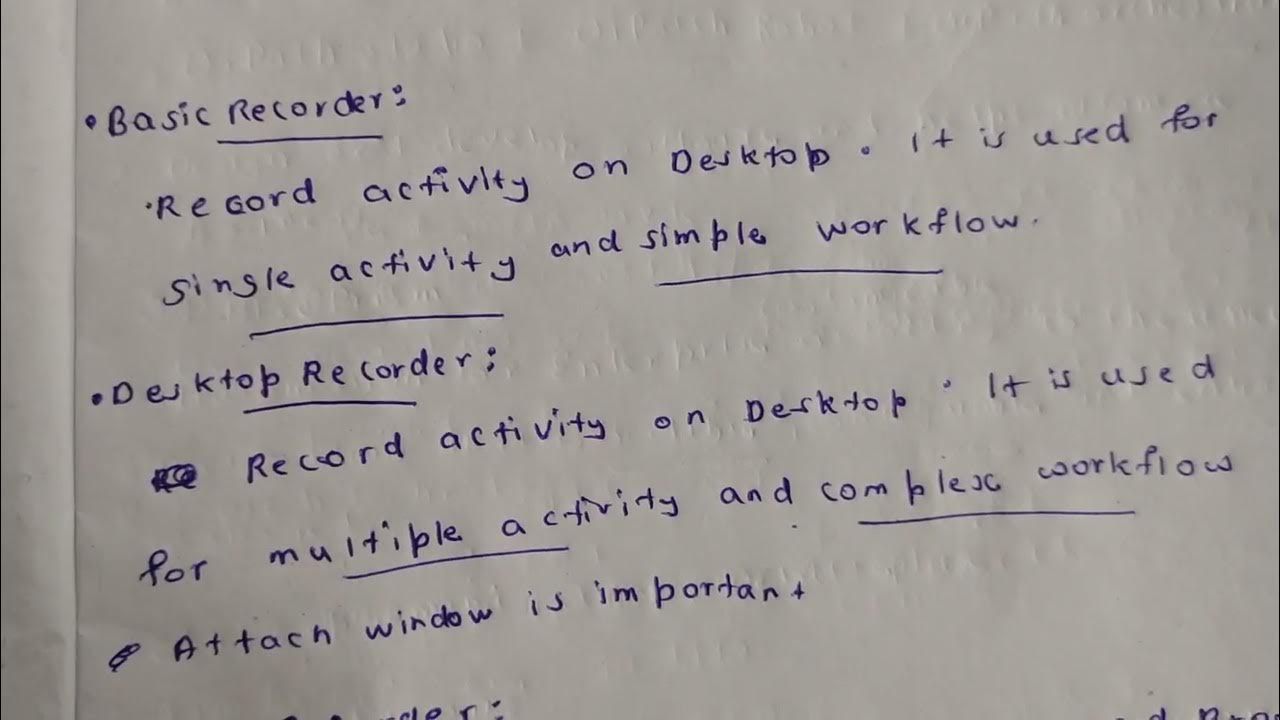 • Basic Recorder:
• Record activity on Desktop. it is used for
single activity and simple workflow.
• Desktop Recorder:
Record activity on Desktop. It is used
for multiple activity and complex workflow
Attach window is important